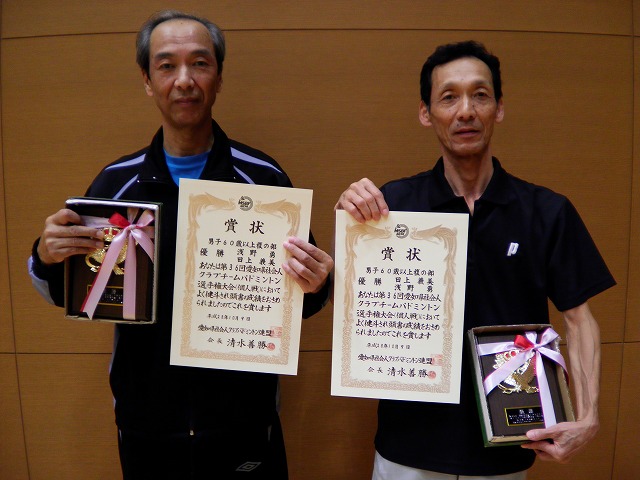 賞状
男子60歳以上複の部
優勝 浅野 勇
日上義美
あなたは第36回愛知県社会人
クラブチームバドミントン
選手権大会(個人戦)において
よく健斗され頭書の成績をおさめ
られましたのでこれを賞します
平成28年10月9日
愛知県社会人クラブバドミントン連盟
会長 清水善勝
賞状
男子60歳以上複の部
優勝 日上義美
浅野 勇
あなたは第36回愛知県社会人
クラブチームバドミントン
選手権大会(個人戦)において
よく健斗され頭書の成績をおさめ
られましたのでこれを賞します
平成28年10月9日
愛知県社会人クラブバドミントン連盟
会長 清水善勝